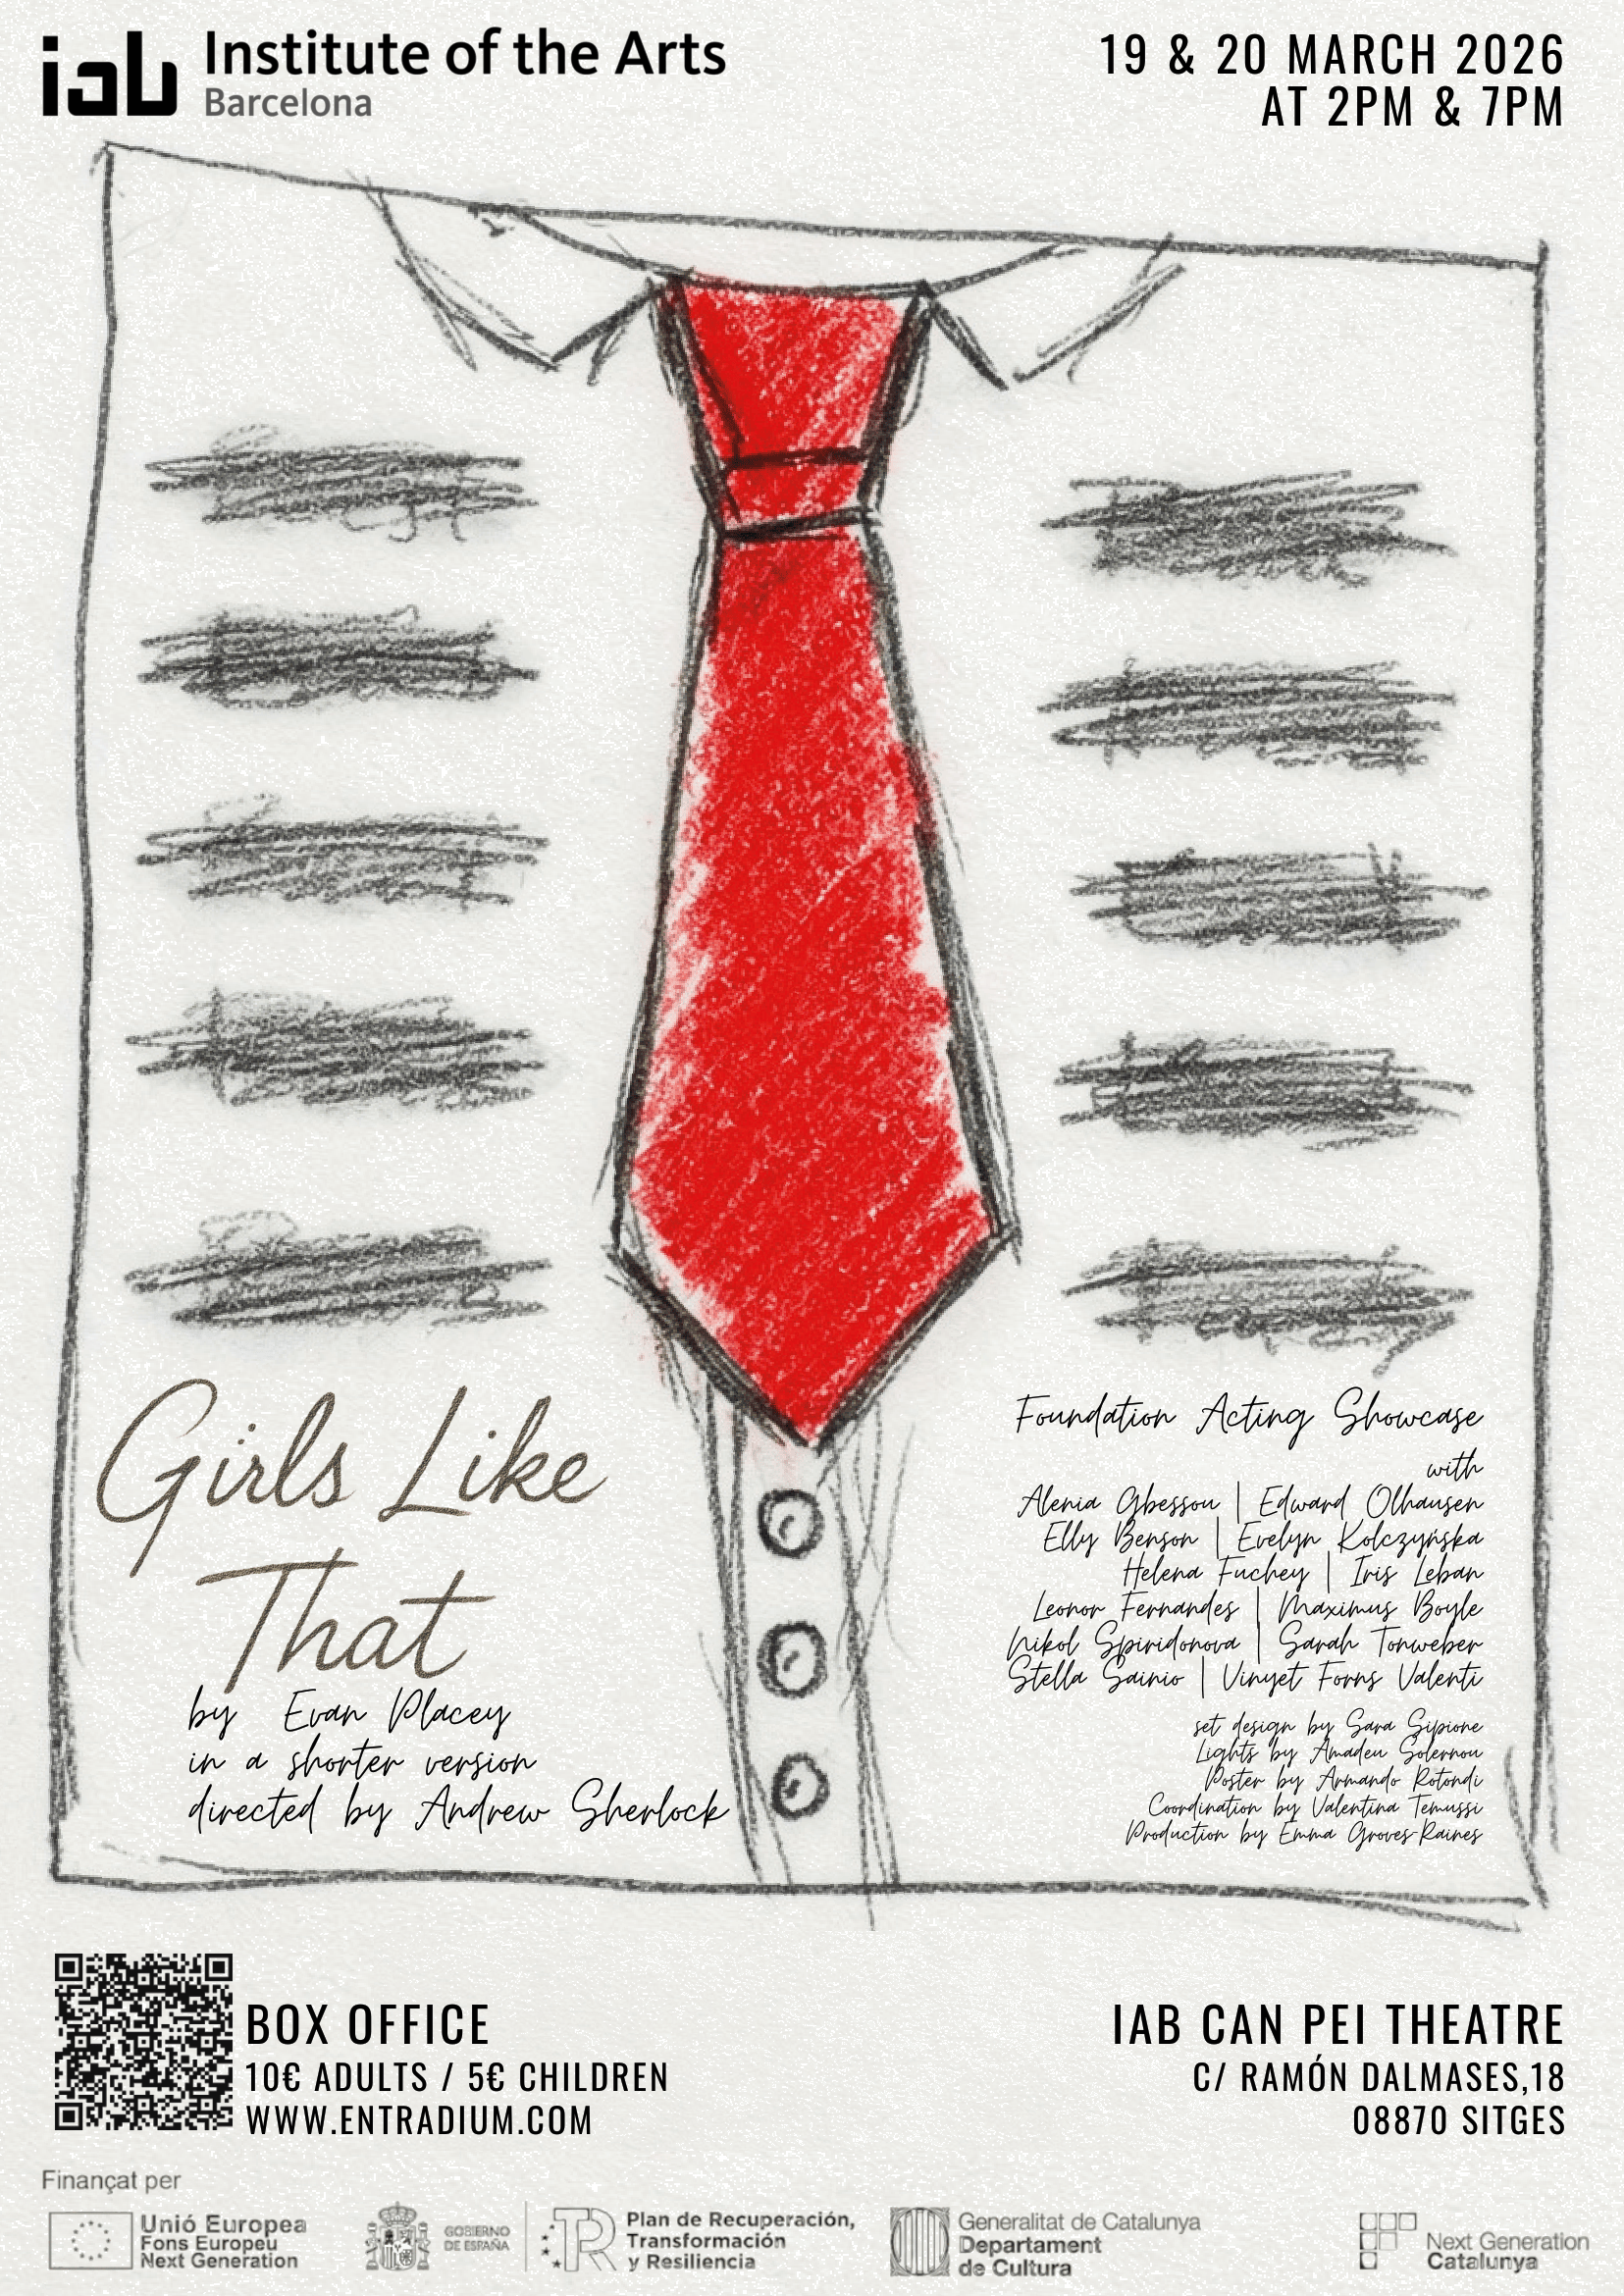 iab Institute of the Arts
Barcelona
19 & 20 MARCH 2026
AT 2PM & 7PM
Girls Like
That
by Evan Placey
in a shorter version
directed by Andrew Sherlock
Foundation Acting Showcase
with
Alenia Gbessou | Edward Olhausen
Elly Benson | Evelyn Kolczyńska
Helena Fuchey | Iris Leban
Leonor Fernandes | Maximus Boyle
Nikol Spiridonova | Sarah Tonweber
Stella Sainio | Vinyet Forns Valenti
set design by Sara Sipione
Lights by Amadeu Solernou
Poster by Armando Rotondi
Coordination by Valentina Temussi
Production by Emma Groves-Raines
BOX OFFICE
10€ ADULTS / 5€ CHILDREN
WWW.ENTRADIUM.COM
IAB CAN PEI THEATRE
C/ RAMÓN DALMASES,18
08870 SITGES
Finançat per
Unió Europea
Fons Europeu
Next Generation
GOBIERNO
DE ESPAÑA
Plan de Recuperación,
Transformación
y Resiliencia
Generalitat de Catalunya
Departament
de Cultura
Next Generation
Catalunya